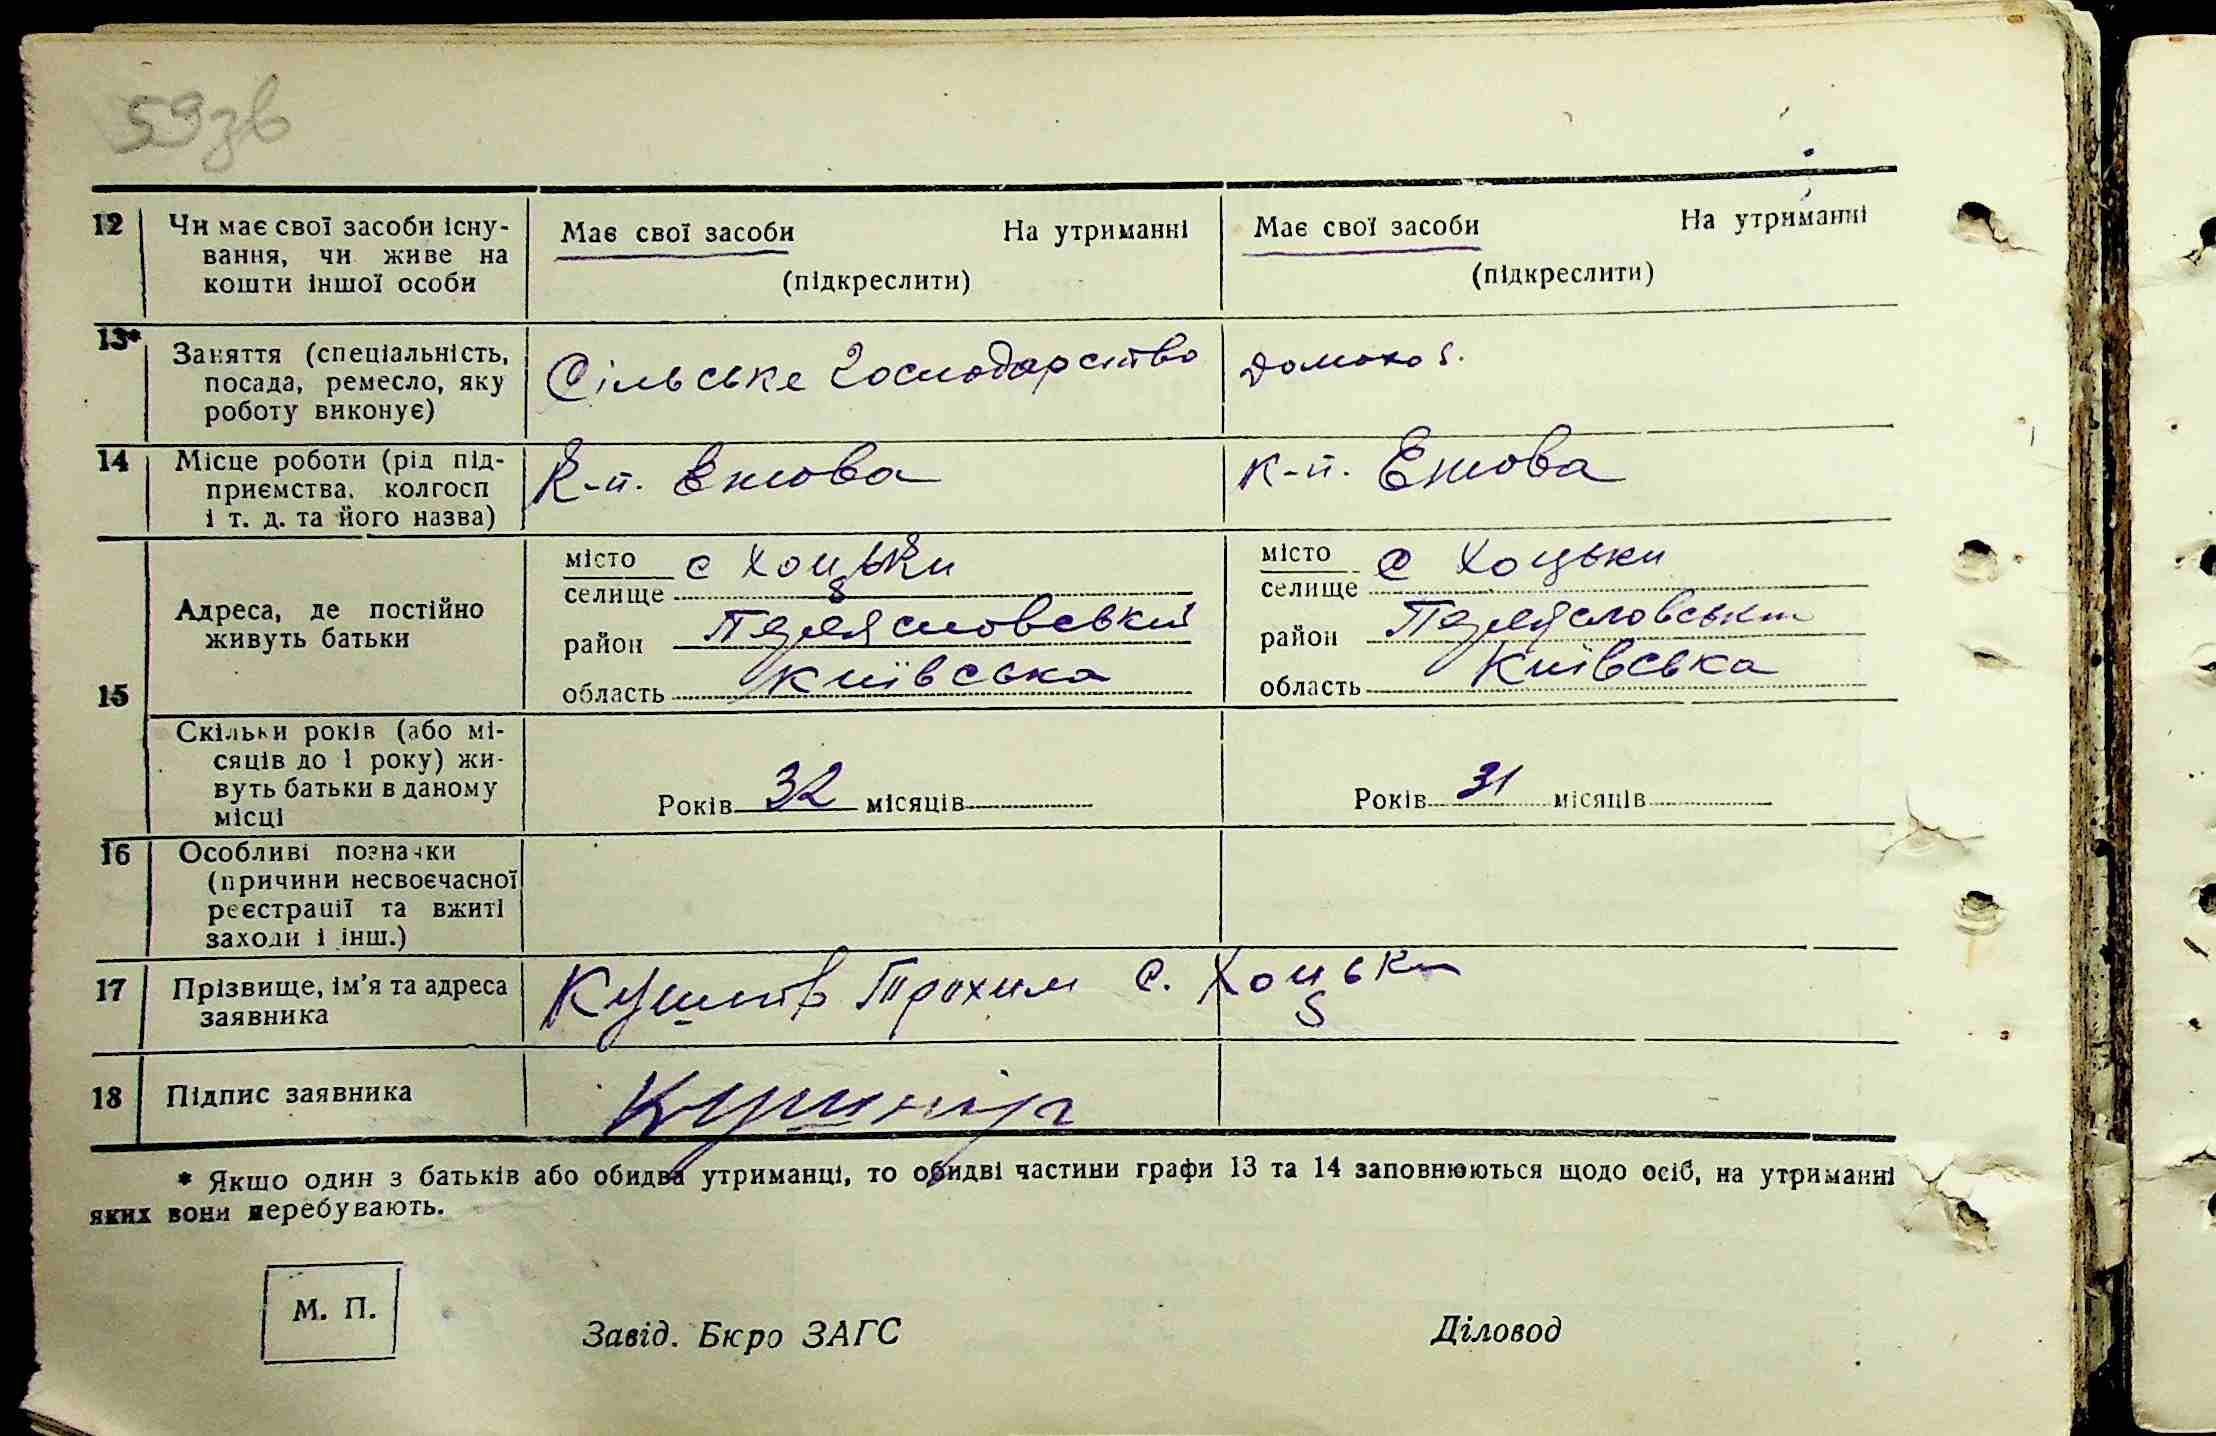 59зв
12 Чи має свої засоби існу- Має свої засоби На утриманні Має свої засоби На утриманні
вання, чи живе на
кошти іншої особи (підкреслити) (підкреслити)
13* Заняття (спеціальність, Сільське Господарство домохоз.
посада, ремесло, яку
роботу виконує)
14 Місце роботи (рід під- К-п. Ежова К-п. Ежова
приємства, колгосп
і т. д. та його назва)
місто с Хоцьки місто с Хоцьки
селище селище
Адреса, де постійно район Переясловський район Переясловський
живуть батьки
15 область Київська область Київська
Скільки років (або мі-
сяців до 1 року) жи-
вуть батьки в даному Років 32 місяців Років 31 місяців
місці
16 Особливі позначки
(причини несвоєчасної
реєстрації та вжиті
заходи і інш.)
17 Прізвище, ім'я та адреса Трохим с. Хоцьки
заявника
18 Підпис заявника
* Якшо один з батьків або обидва утриманці, то обидві частини графи 13 та 14 заповнюються щодо осіб, на утриманні
яких вони перебувають.
М. П.
Завід. Бюро ЗАГС Діловод